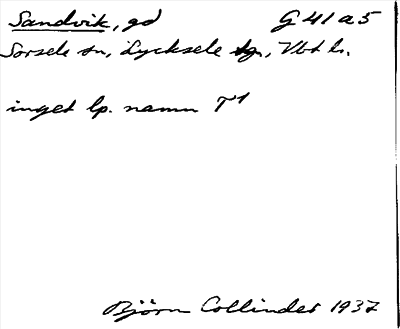 Sandvik, gd G 41 a 5
Sorsele sn, Lycksele lg., Vbt l.
inget lp. namn T¹
Björn Collinder 1937